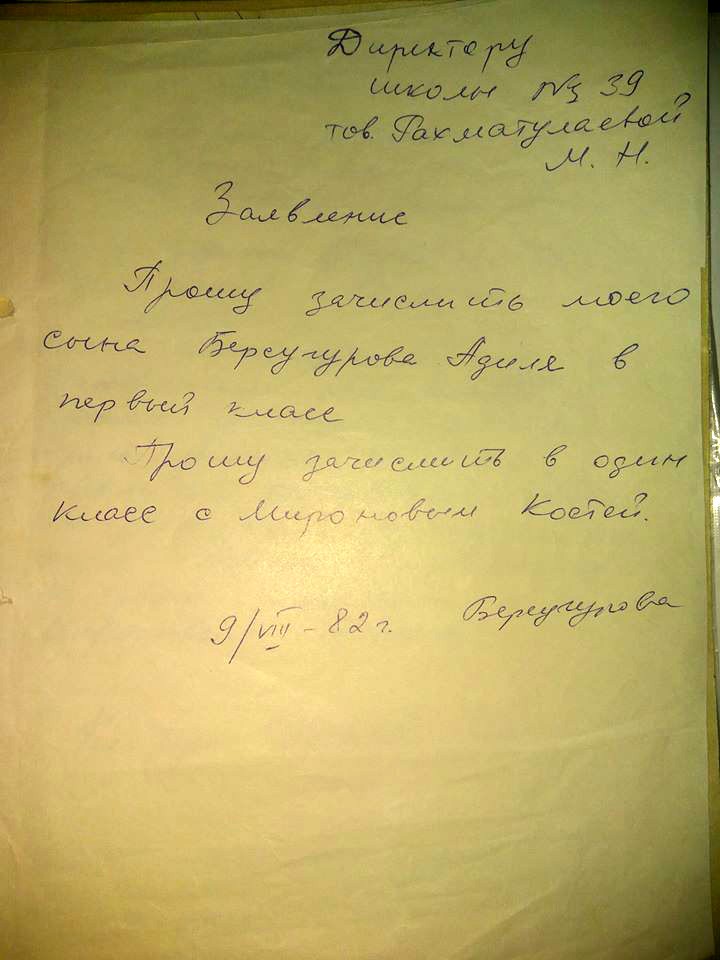 Директору
школы № 39
тов. Рахматулаевой
М. Н.
Заявление
Прошу зачислить моего
сына Берсугурова Адиля в
первый класс
Прошу зачислить в один
класс с Мироновым Костей.
9/VIII – 82 г. Берсугурова